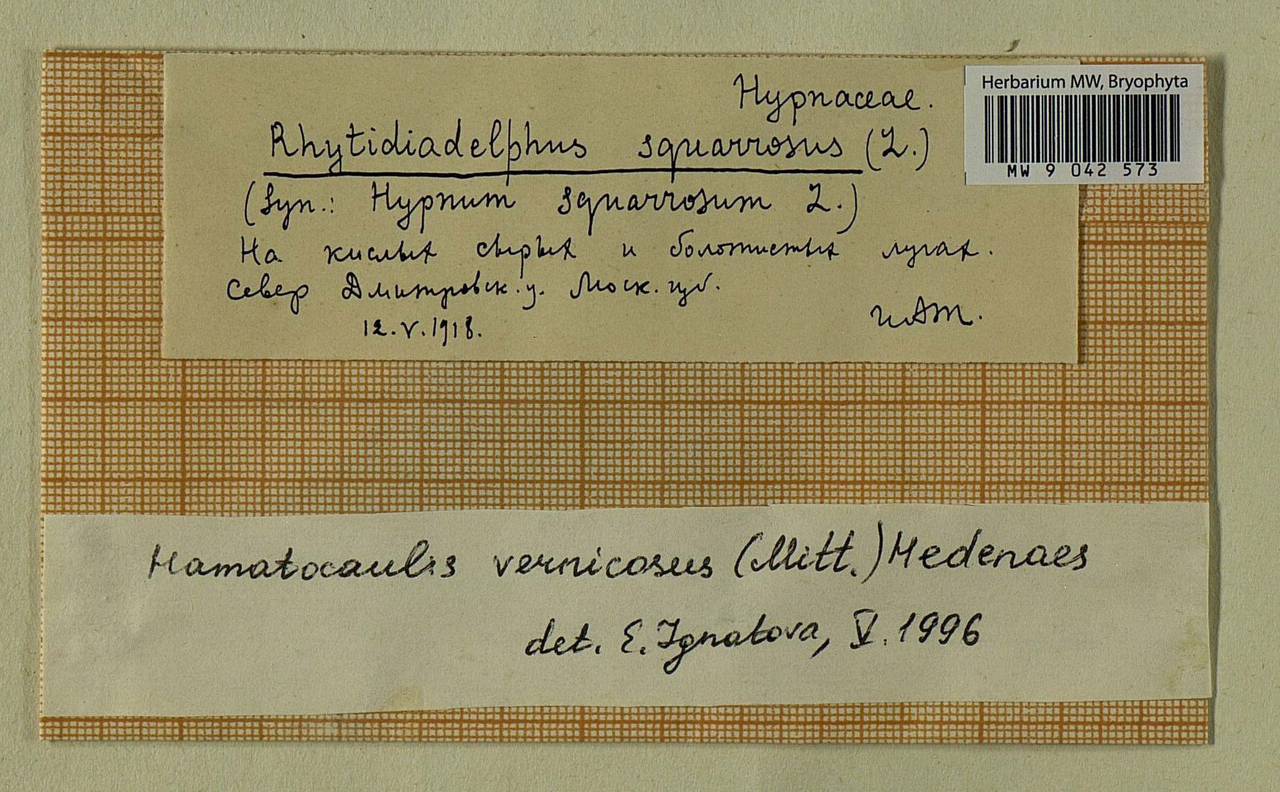 Hypnaceae.
Herbarium MW, Bryophyta
MW 9 042 573
Rhytidiadelphus squarrosus (L.)
(Syn.: Hypnum squarrosum L.)
На кислых сырых и болотистых лугах.
Север Дмитровск. у. Моск. губ.
12.V.1918.
Hamatocaulis vernicosus (Mitt.) Hedenaes
det. E. Ignatova, V. 1996